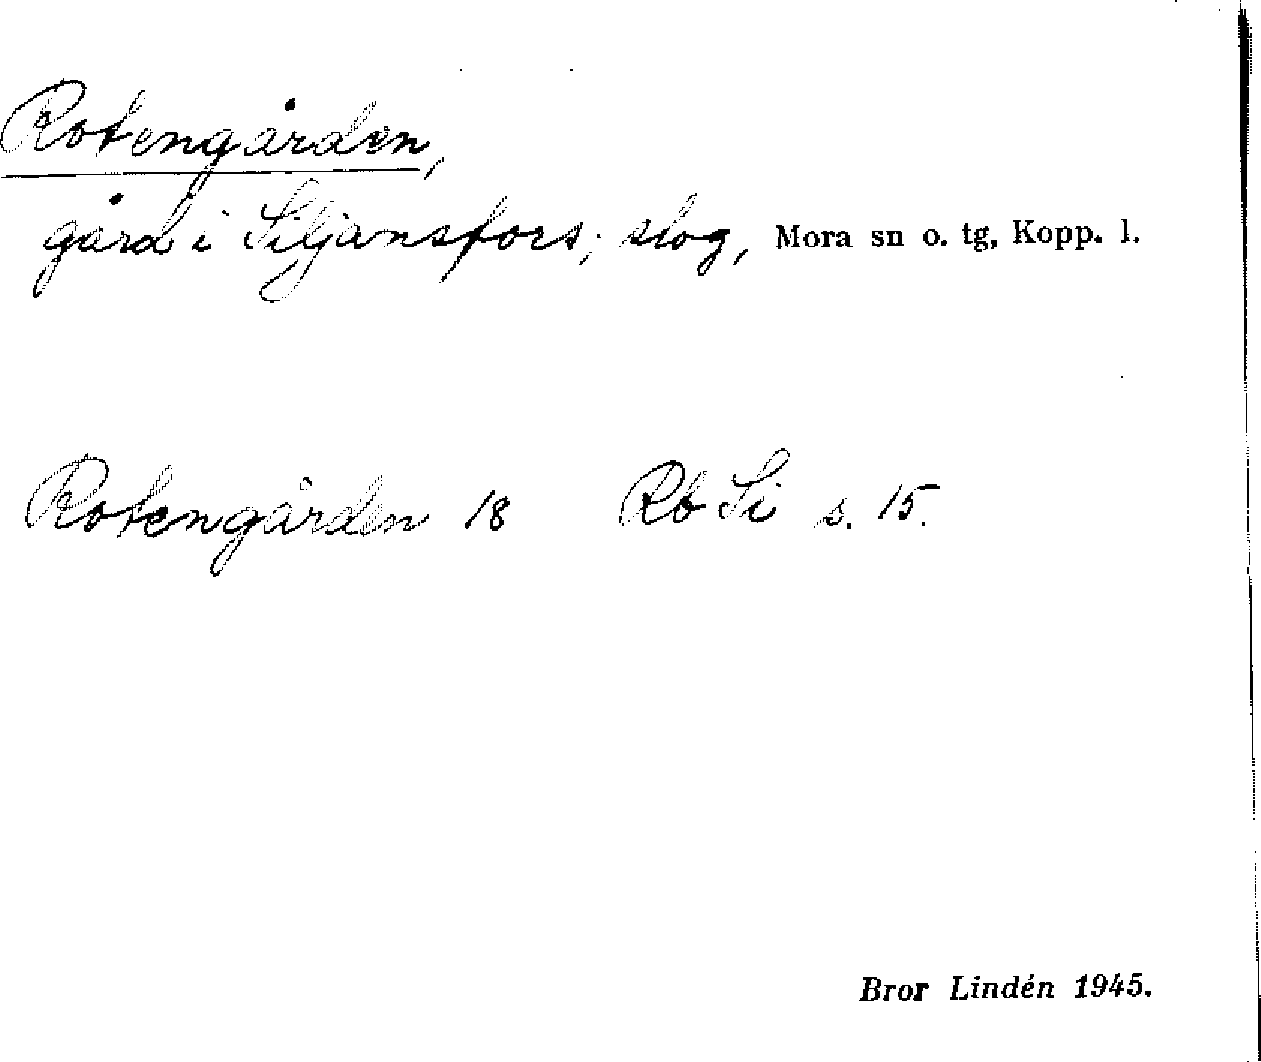 Rotengården,
gård i Siljansfors; skog, Mora sn o. tg, Kopp. l.
Rotengården 18 Rb Si s. 15.
Bror Lindén 1945.